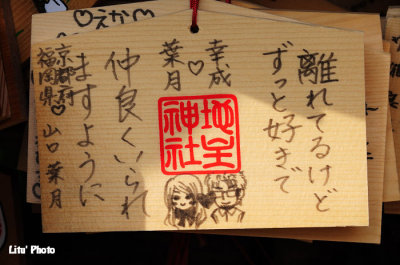 離れてるけど
ずっと好きで
幸成
♡
葉月
地主
神社
仲良くいられ
ますように
京都府
♡
福岡県
山口 葉月
えか
Litu' Photo